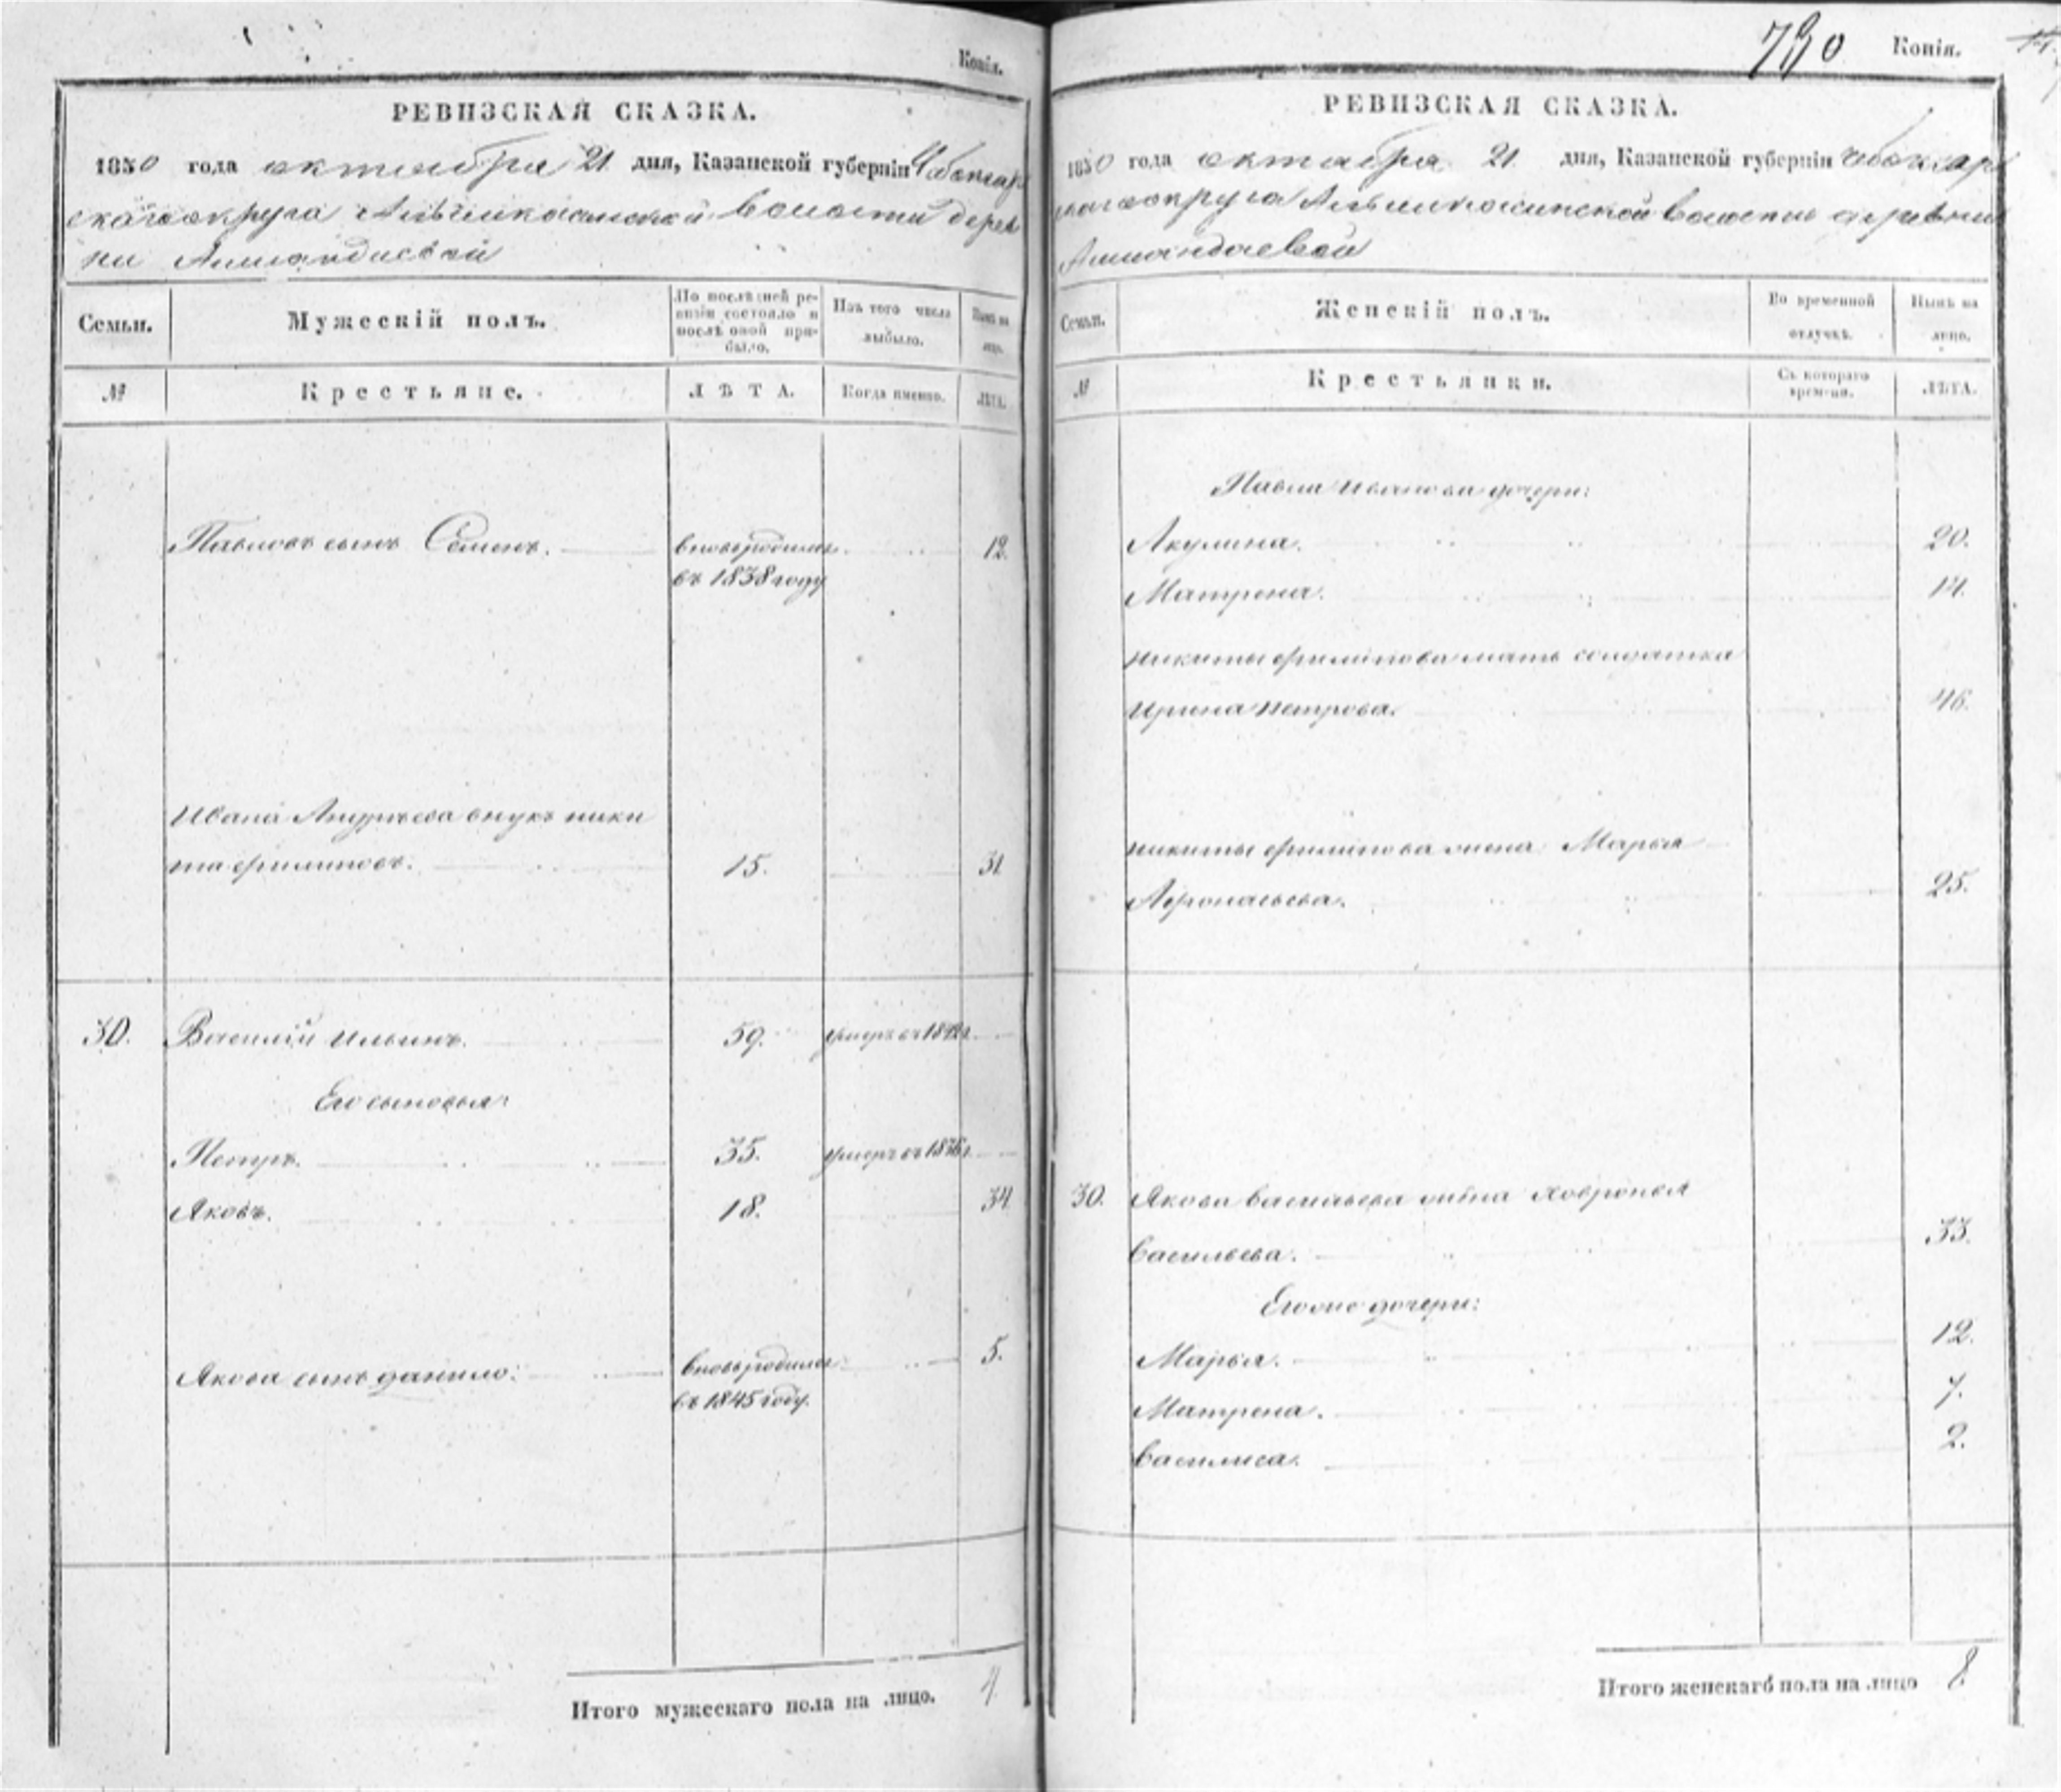 Копія.
РЕВИЗСКАЯ СКАЗКА.
1850 года октября 21 дня, Казанской губерніи Чебоксар
скаго округа волости дерев
ни
Семьи.
Мужескій полъ.
По послѣдней ре-
визіи состояло и
послѣ оной при-
было.
Изъ того числа
выбыло.
Нынѣ на
лицо.
№
Крестьяне.
ЛѢТА.
Когда именно.
ЛѢТА.
Павловъ сынъ Семенъ.
вновь родился
въ 1838 году
12.
Ивана Андреева внукъ ники
та филиповъ.
15.
31
30.
Василій Ильинъ.
59.
умеръ въ
Его сыновья:
Петръ.
35.
умеръ въ
Яковъ.
18.
34
Якова сынъ данило:
вновь родился
въ 1845 году.
5.
Итого мужескаго пола на лицо.
4.
730
Копія.
РЕВИЗСКАЯ СКАЗКА.
1850 года октября 21 дня, Казанской губерніи Чебоксар
скаго округа волости деревни
Семьи.
Женскій полъ.
Во временной
отлучкѣ.
Нынѣ на
лицо.
№
Крестьянки.
Съ котораго
времени.
ЛѢТА.
Павла Иванова дочери:
Акулина.
20.
Матрена.
14.
никиты филипова мать солдатка
Ирина петрова.
46.
никиты филипова жена Марья
25.
30.
Якова васильева жена
васильева.
33.
Его же дочери:
Марья.
12.
Матрена.
7.
василиса.
2.
Итого женскаго пола на лицо
8